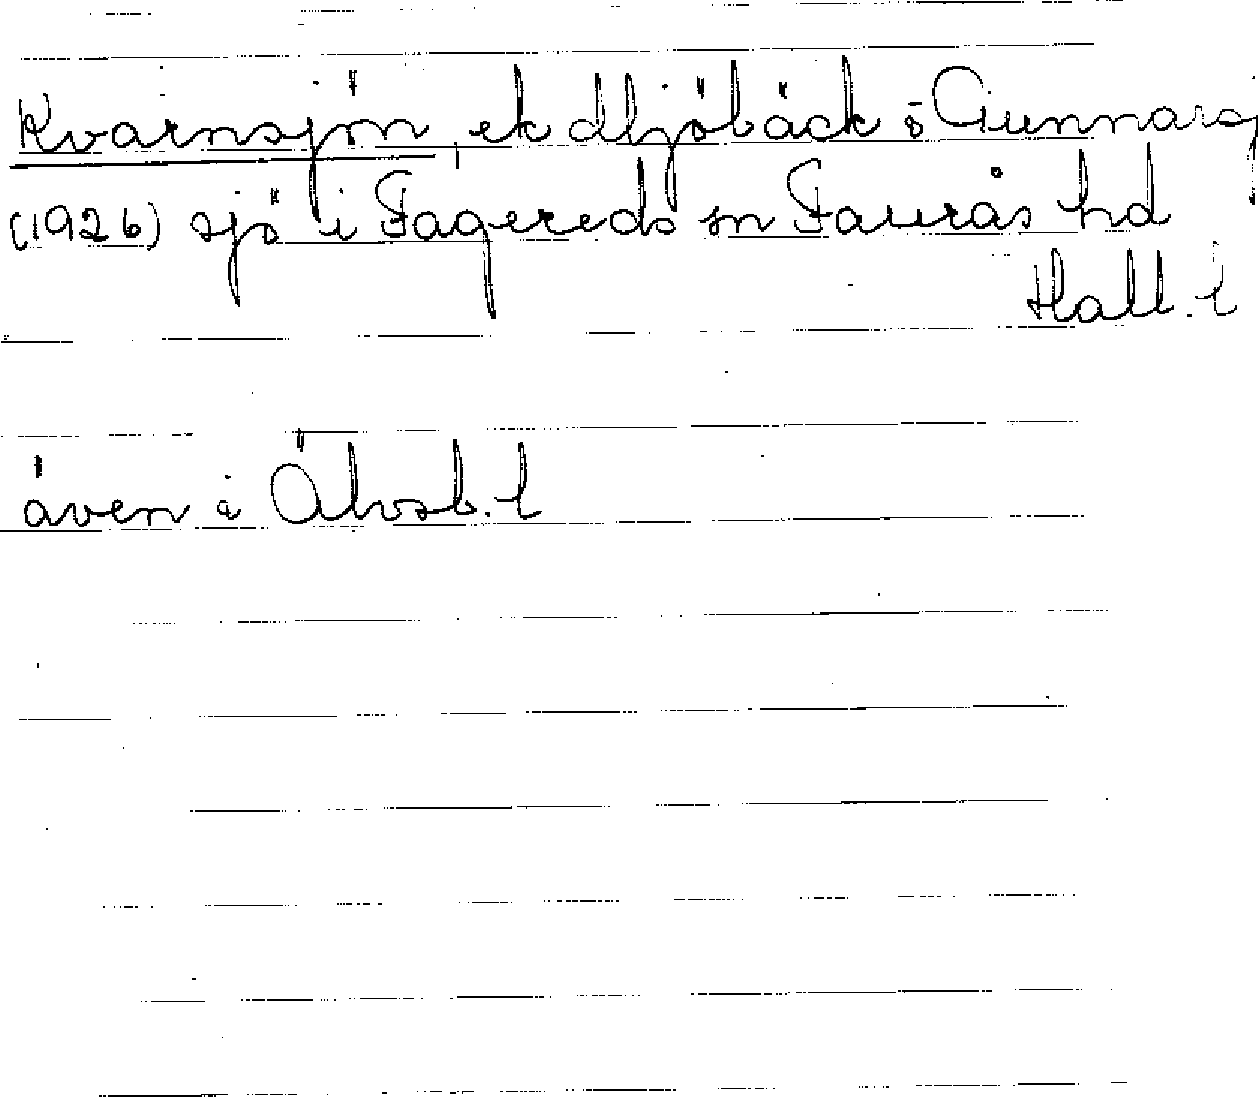 Kvarnsjön, ek dljöbäck i Gunnarsj
(1926) sjö i Fagereds sn Faurås hd
Hall. l
även i Älvsb. l